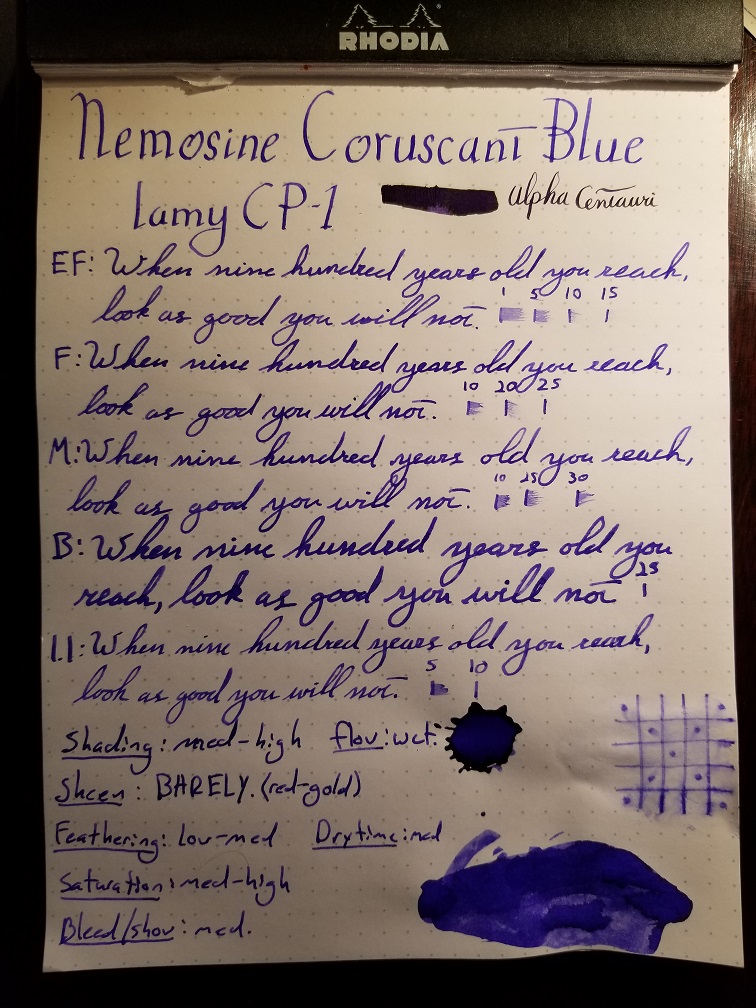 RHODIA
Nemosine Coruscant Blue
Lamy CP-1
Alpha Centauri
EF: When nine hundred years old you reach,
look as good you will not.
1 5 10 15
F: When nine hundred years old you reach,
look as good you will not.
10 20 25
M: When nine hundred years old you reach,
look as good you will not.
10 25 30
B: When nine hundred years old you
reach, look as good you will not
25
1.1: When nine hundred years old you reach,
look as good you will not.
5 10
Shading: med-high Flow: wet.
Sheen: BARELY. (red-gold)
Feathering: Low-med Drytime: med
Saturation: med-high
Bleed/show: med.